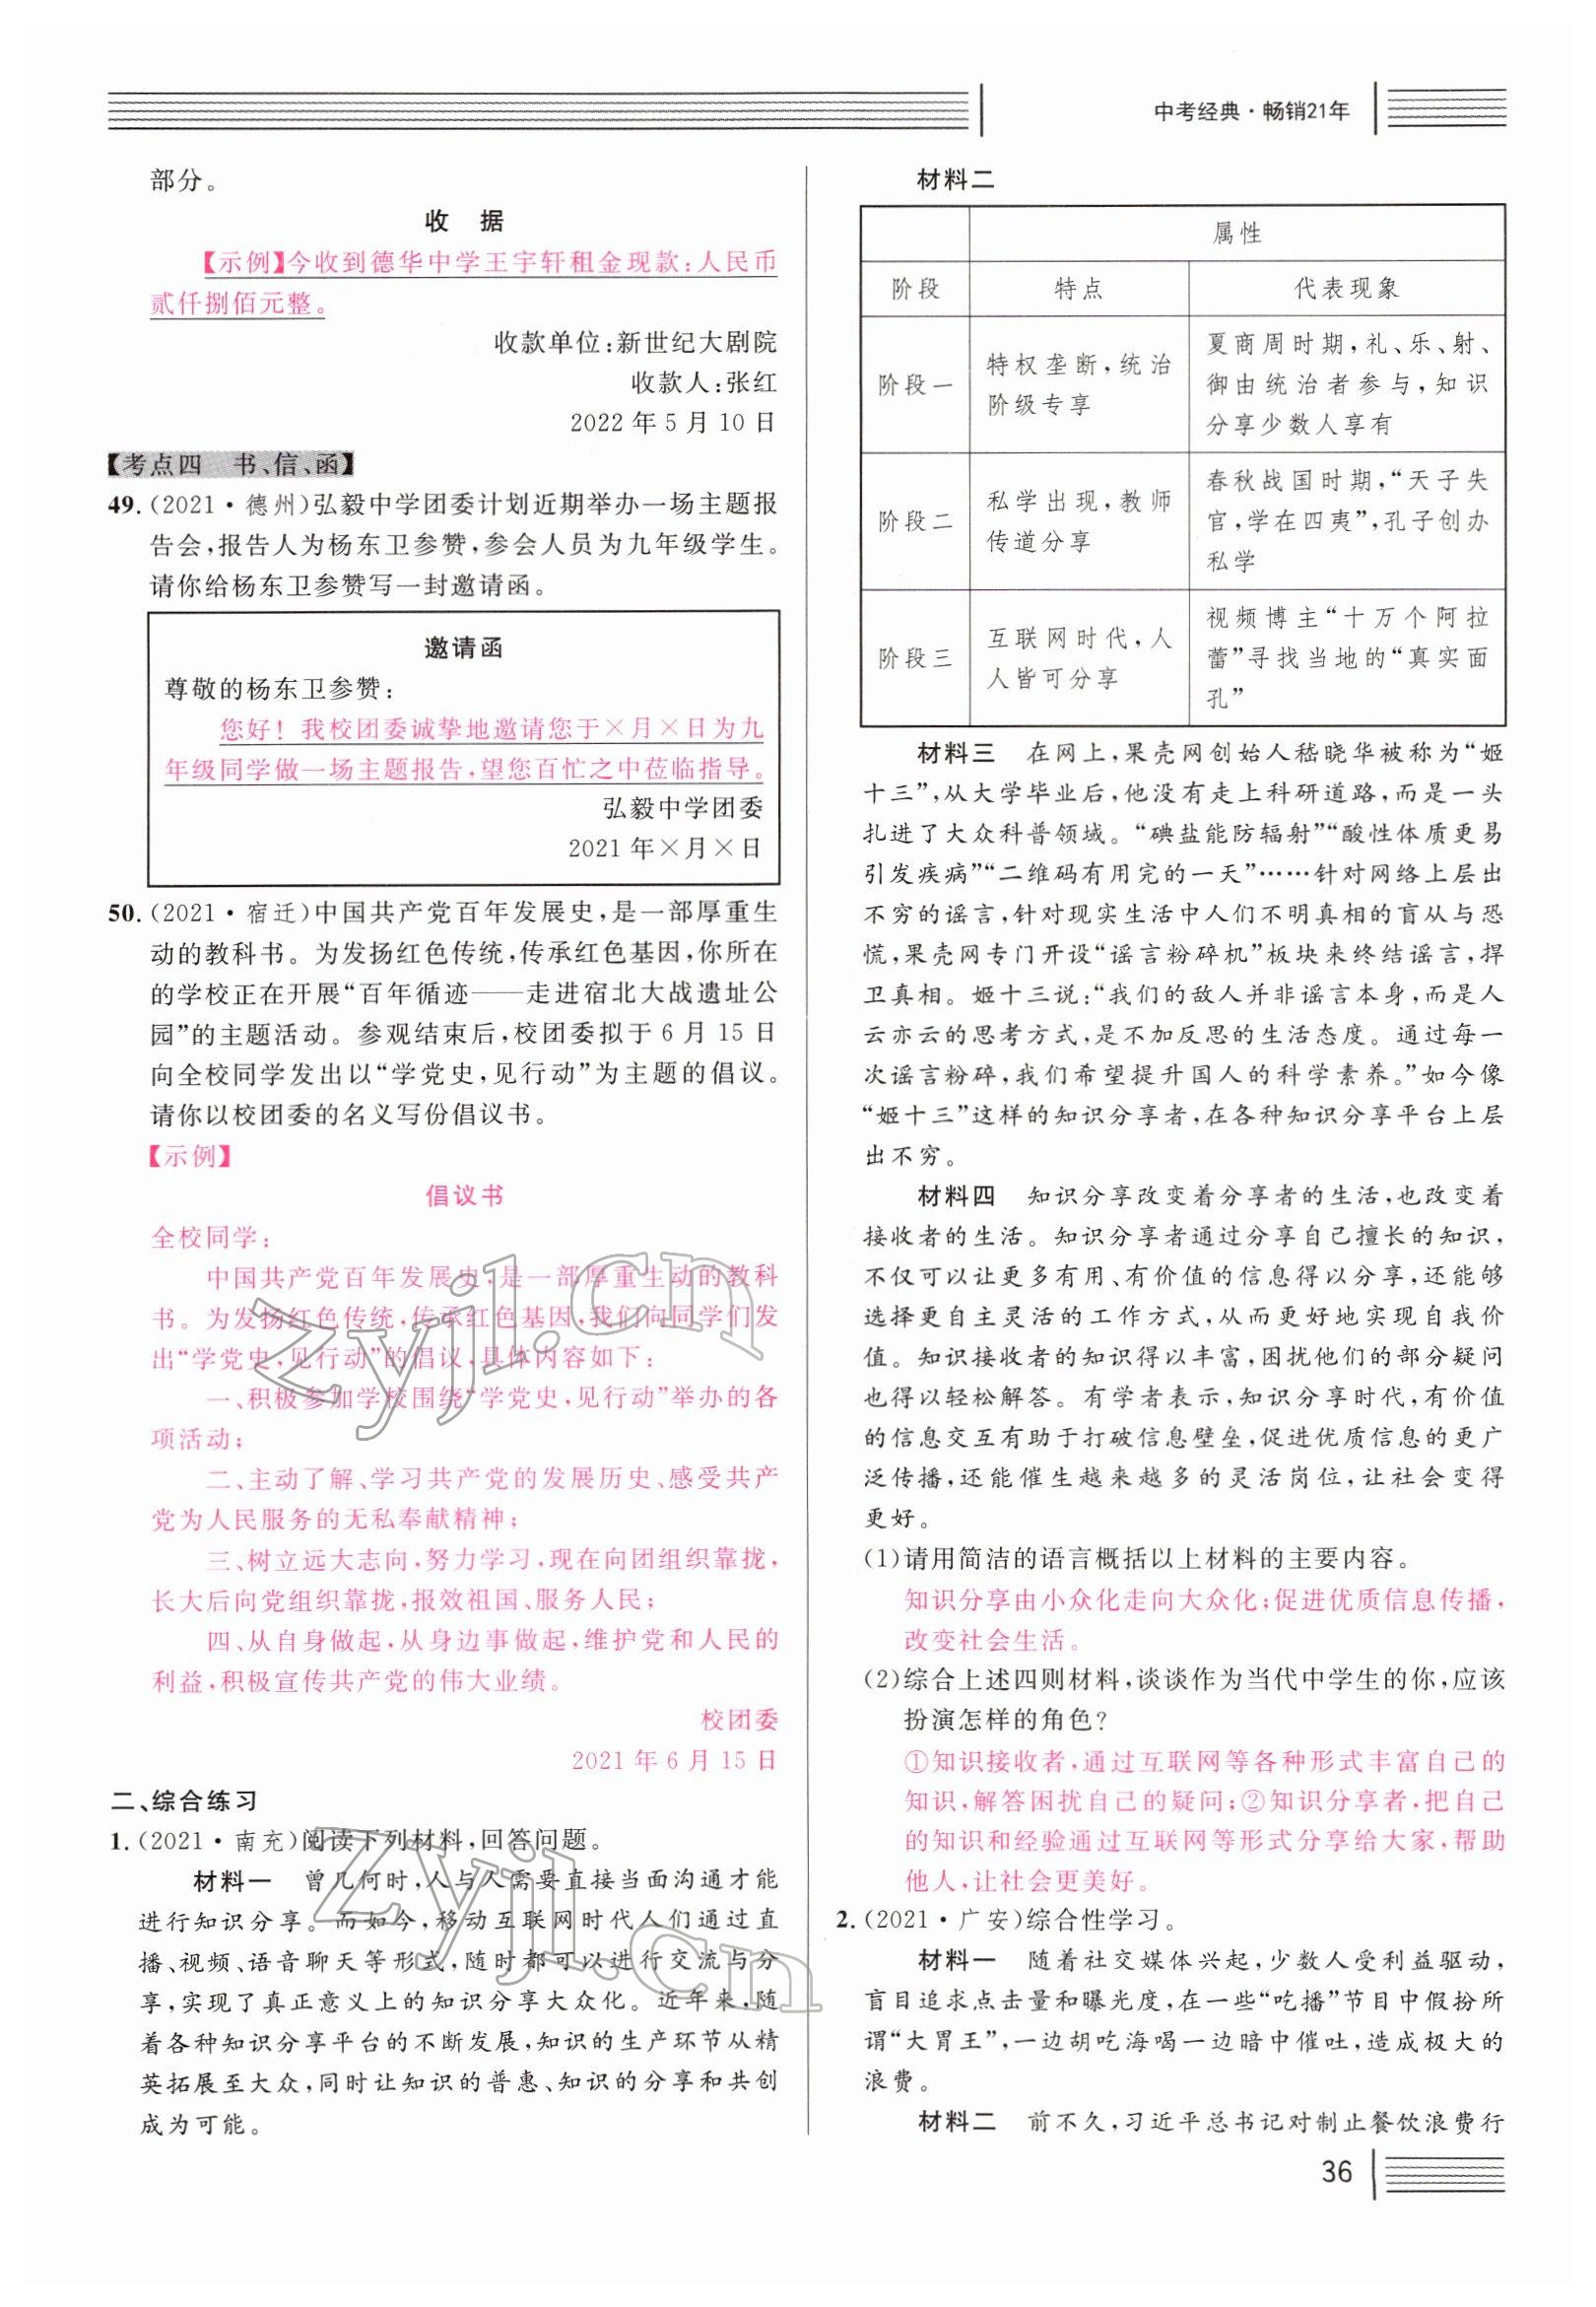 中考经典·畅销21年
部分。
收　据
【示例】今收到德华中学王宇轩租金现款:人民币
贰仟捌佰元整。
收款单位:新世纪大剧院
收款人:张红
2022年5月10日
【考点四　书、信、函】
49.(2021·德州)弘毅中学团委计划近期举办一场主题报
告会,报告人为杨东卫参赞,参会人员为九年级学生。
请你给杨东卫参赞写一封邀请函。
邀请函
尊敬的杨东卫参赞:
您好!我校团委诚挚地邀请您于×月×日为九
年级同学做一场主题报告,望您百忙之中莅临指导。
弘毅中学团委
2021年×月×日
50.(2021·宿迁)中国共产党百年发展史,是一部厚重生
动的教科书。为发扬红色传统,传承红色基因,你所在
的学校正在开展“百年循迹——走进宿北大战遗址公
园”的主题活动。参观结束后,校团委拟于6月15日
向全校同学发出以“学党史,见行动”为主题的倡议。
请你以校团委的名义写份倡议书。
【示例】
倡议书
全校同学:
中国共产党百年发展史,是一部厚重生动的教科
书。为发扬红色传统,传承红色基因,我们向同学们发
出“学党史,见行动”的倡议,具体内容如下:
一、积极参加学校围绕“学党史,见行动”举办的各
项活动;
二、主动了解、学习共产党的发展历史、感受共产
党为人民服务的无私奉献精神;
三、树立远大志向,努力学习,现在向团组织靠拢,
长大后向党组织靠拢,报效祖国、服务人民;
四、从自身做起,从身边事做起,维护党和人民的
利益,积极宣传共产党的伟大业绩。
校团委
2021年6月15日
二、综合练习
1.(2021·南充)阅读下列材料,回答问题。
材料一　曾几何时,人与人需要直接当面沟通才能
进行知识分享。而如今,移动互联网时代人们通过直
播、视频、语音聊天等形式,随时都可以进行交流与分
享,实现了真正意义上的知识分享大众化。近年来,随
着各种知识分享平台的不断发展,知识的生产环节从精
英拓展至大众,同时让知识的普惠、知识的分享和共创
成为可能。
材料二
属性
阶段　特点　代表现象
阶段一　特权垄断,统治阶级专享　夏商周时期,礼、乐、射、御由统治者参与,知识分享少数人享有
阶段二　私学出现,教师传道分享　春秋战国时期,“天子失官,学在四夷”,孔子创办私学
阶段三　互联网时代,人人皆可分享　视频博主“十万个阿拉蕾”寻找当地的“真实面孔”
材料三　在网上,果壳网创始人嵇晓华被称为“姬
十三”,从大学毕业后,他没有走上科研道路,而是一头
扎进了大众科普领域。“碘盐能防辐射”“酸性体质更易
引发疾病”“二维码有用完的一天”……针对网络上层出
不穷的谣言,针对现实生活中人们不明真相的盲从与恐
慌,果壳网专门开设“谣言粉碎机”板块来终结谣言,捍
卫真相。姬十三说:“我们的敌人并非谣言本身,而是人
云亦云的思考方式,是不加反思的生活态度。通过每一
次谣言粉碎,我们希望提升国人的科学素养。”如今像
“姬十三”这样的知识分享者,在各种知识分享平台上层
出不穷。
材料四　知识分享改变着分享者的生活,也改变着
接收者的生活。知识分享者通过分享自己擅长的知识,
不仅可以让更多有用、有价值的信息得以分享,还能够
选择更自主灵活的工作方式,从而更好地实现自我价
值。知识接收者的知识得以丰富,困扰他们的部分疑问
也得以轻松解答。有学者表示,知识分享时代,有价值
的信息交互有助于打破信息壁垒,促进优质信息的更广
泛传播,还能催生越来越多的灵活岗位,让社会变得
更好。
(1)请用简洁的语言概括以上材料的主要内容。
知识分享由小众化走向大众化;促进优质信息传播,
改变社会生活。
(2)综合上述四则材料,谈谈作为当代中学生的你,应该
扮演怎样的角色?
①知识接收者,通过互联网等各种形式丰富自己的
知识,解答困扰自己的疑问;②知识分享者,把自己
的知识和经验通过互联网等形式分享给大家,帮助
他人,让社会更美好。
2.(2021·广安)综合性学习。
材料一　随着社交媒体兴起,少数人受利益驱动,
盲目追求点击量和曝光度,在一些“吃播”节目中假扮所
谓“大胃王”,一边胡吃海喝一边暗中催吐,造成极大的
浪费。
材料二　前不久,习近平总书记对制止餐饮浪费行
36
zyjl.cn
zyjl.cn